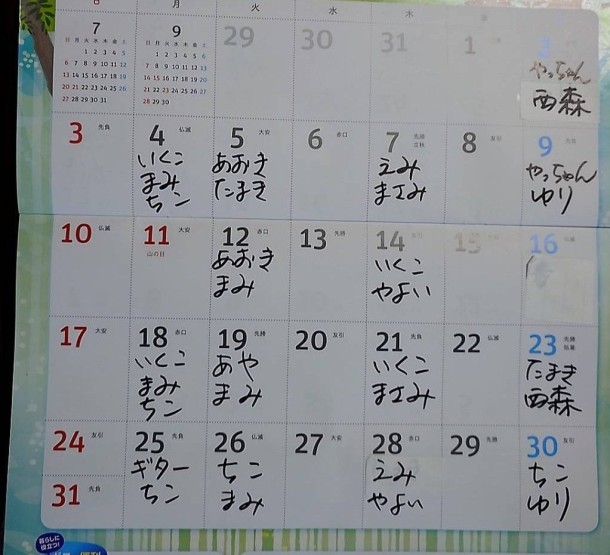 日 月 火 水 木
7 9 29 30 31 1 2
日 月 火 水 木 金 土
1 2 3 4 5
6 7 8 9 10 11 12
13 14 15 16 17 18 19
20 21 22 23 24 25 26
27 28 29 30 31
日 月 火 水 木 金 土
1 2 3 4 5 6
7 8 9 10 11 12 13
14 15 16 17 18 19 20
21 22 23 24 25 26 27
28 29 30
やっちゃん
西森
3 先負 4 仏滅 5 大安 6 赤口 7 先勝 8 友引 9 先負
立秋
いくこ あおき えみ やっちゃん
まみ たまき まさみ ゆり
チン
10 仏滅 11 大安 12 赤口 13 先勝 14 友引 15 先負 16 仏滅
山の日
あおき いくこ
まみ やよい
17 大安 18 赤口 19 先勝 20 友引 21 先負 22 仏滅 23 先勝
処暑
いくこ あや いくこ たまき
まみ まみ まさみ 西森
チン
24 友引 25 先負 26 仏滅 27 大安 28 赤口 29 先勝 30 友引
ギター ちこ えみ ちこ
チン まみ やよい ゆり
31 先負
暮らしに
役立つ!